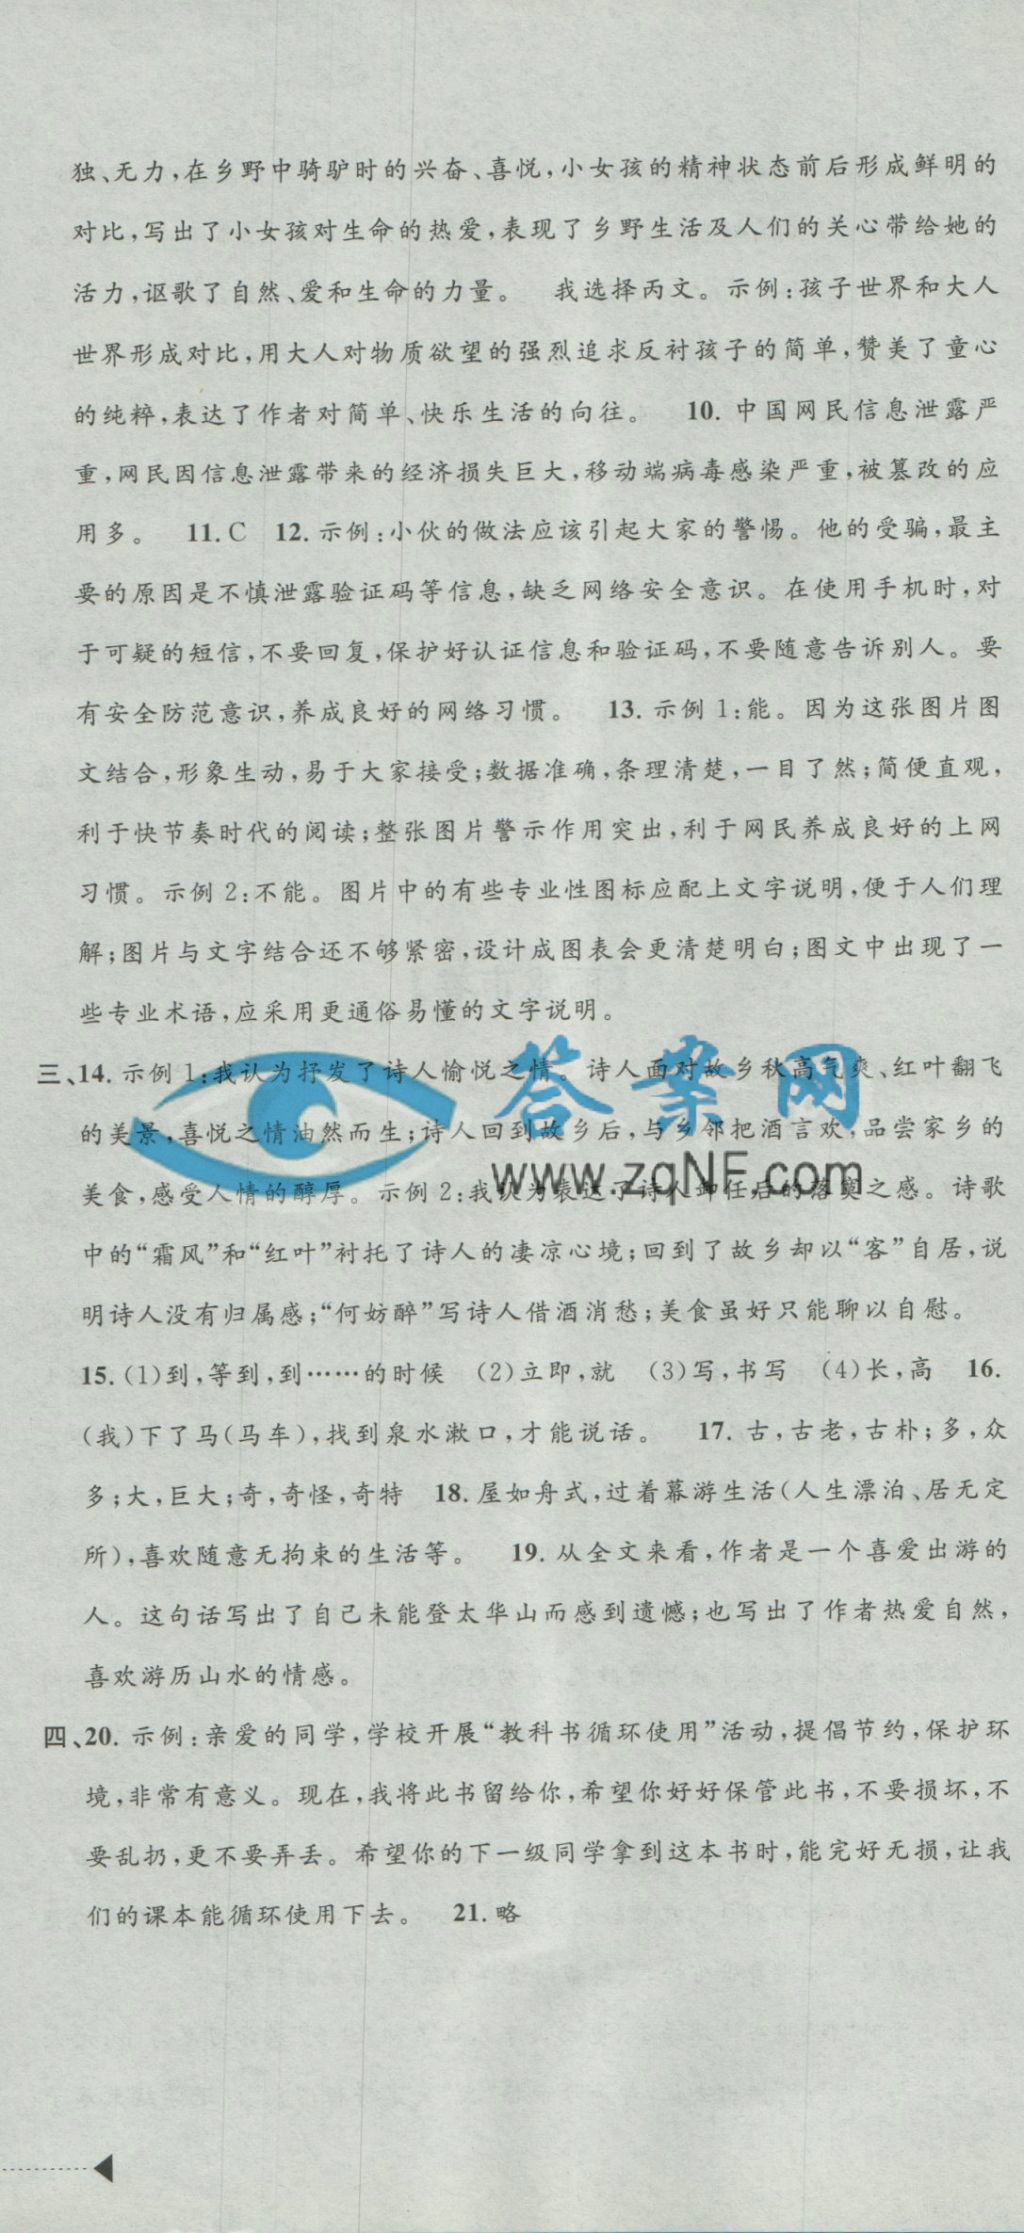 独、无力,在乡野中骑驴时的兴奋、喜悦,小女孩的精神状态前后形成鲜明的
对比,写出了小女孩对生命的热爱,表现了乡野生活及人们的关心带给她的
活力,讴歌了自然、爱和生命的力量。 我选择丙文。示例:孩子世界和大人
世界形成对比,用大人对物质欲望的强烈追求反衬孩子的简单,赞美了童心
的纯粹,表达了作者对简单、快乐生活的向往。 10. 中国网民信息泄露严
重,网民因信息泄露带来的经济损失巨大,移动端病毒感染严重,被篡改的应
用多。 11. C 12. 示例:小伙的做法应该引起大家的警惕。他的受骗,最主
要的原因是不慎泄露验证码等信息,缺乏网络安全意识。在使用手机时,对
于可疑的短信,不要回复,保护好认证信息和验证码,不要随意告诉别人。要
有安全防范意识,养成良好的网络习惯。 13. 示例 1:能。因为这张图片图
文结合,形象生动,易于大家接受;数据准确,条理清楚,一目了然;简便直观,
利于快节奏时代的阅读;整张图片警示作用突出,利于网民养成良好的上网
习惯。示例 2:不能。图片中的有些专业性图标应配上文字说明,便于人们理
解;图片与文字结合还不够紧密,设计成图表会更清楚明白;图文中出现了一
些专业术语,应采用更通俗易懂的文字说明。
三、14. 示例 1:我认为抒发了诗人愉悦之情。诗人面对故乡秋高气爽、红叶翻飞
的美景,喜悦之情油然而生;诗人回到故乡后,与乡邻把酒言欢,品尝家乡的
美食,感受人情的醇厚。示例 2:我认为表达了诗人卸任后的落寞之感。诗歌
中的“霜风”和“红叶”衬托了诗人的凄凉心境;回到了故乡却以“客”自居,说
明诗人没有归属感;“何妨醉”写诗人借酒消愁;美食虽好只能聊以自慰。
15. (1)到,等到,到……的时候 (2)立即,就 (3)写,书写 (4)长,高 16.
(我)下了马(马车),找到泉水漱口,才能说话。 17. 古,古老,古朴;多,众
多;大,巨大;奇,奇怪,奇特 18. 屋如舟式,过着幕游生活(人生漂泊、居无定
所),喜欢随意无拘束的生活等。 19. 从全文来看,作者是一个喜爱出游的
人。这句话写出了自己未能登太华山而感到遗憾;也写出了作者热爱自然,
喜欢游历山水的情感。
四、20. 示例:亲爱的同学,学校开展“教科书循环使用”活动,提倡节约,保护环
境,非常有意义。现在,我将此书留给你,希望你好好保管此书,不要损坏,不
要乱扔,更不要弄丢。希望你的下一级同学拿到这本书时,能完好无损,让我
们的课本能循环使用下去。 21. 略
答案网
www.zqNF.com